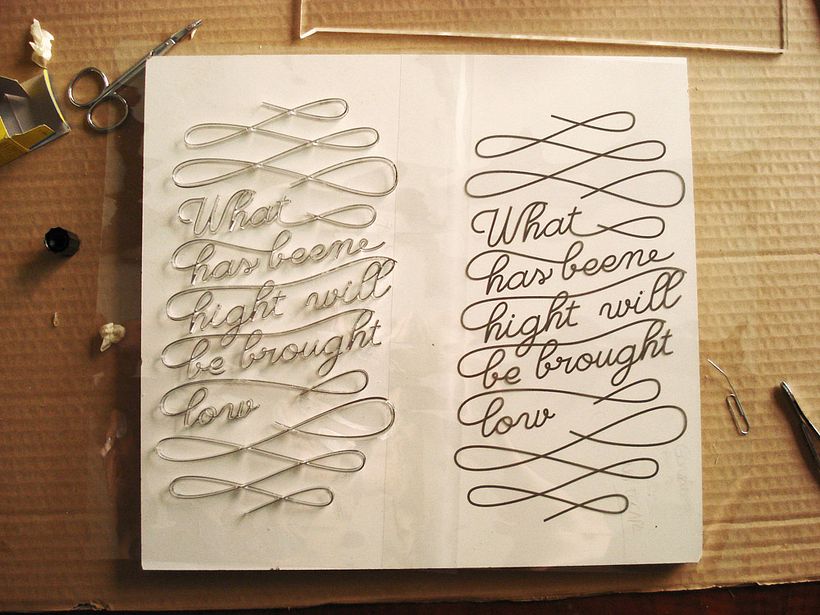 What
has beene
hight will
be brought
low
What
has beene
hight will
be brought
low